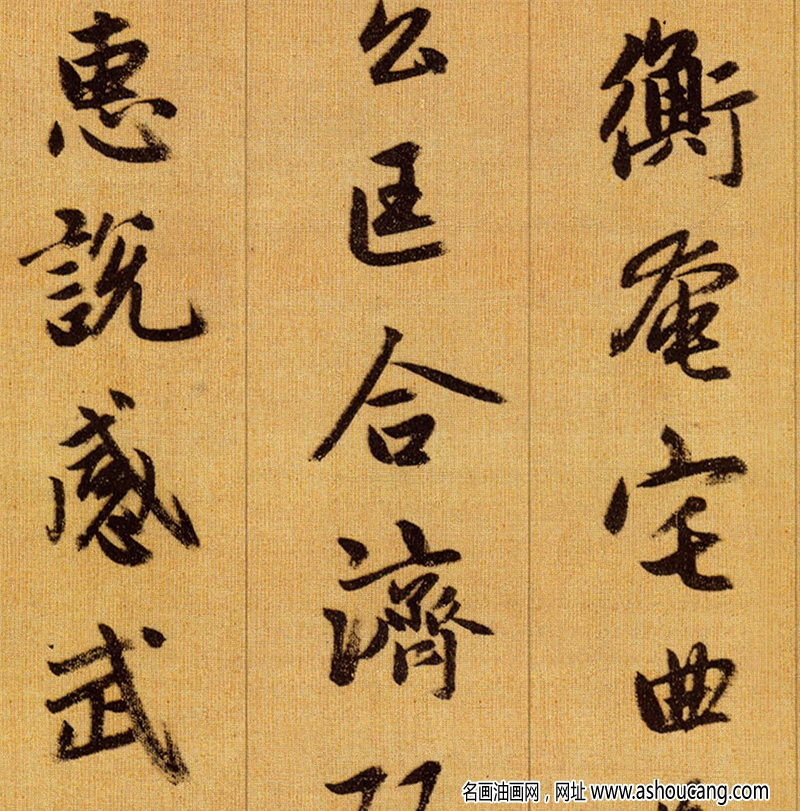 衡奄宅曲
公匡合濟
惠說感武
名画油画网，网址 www.ashoucang.com